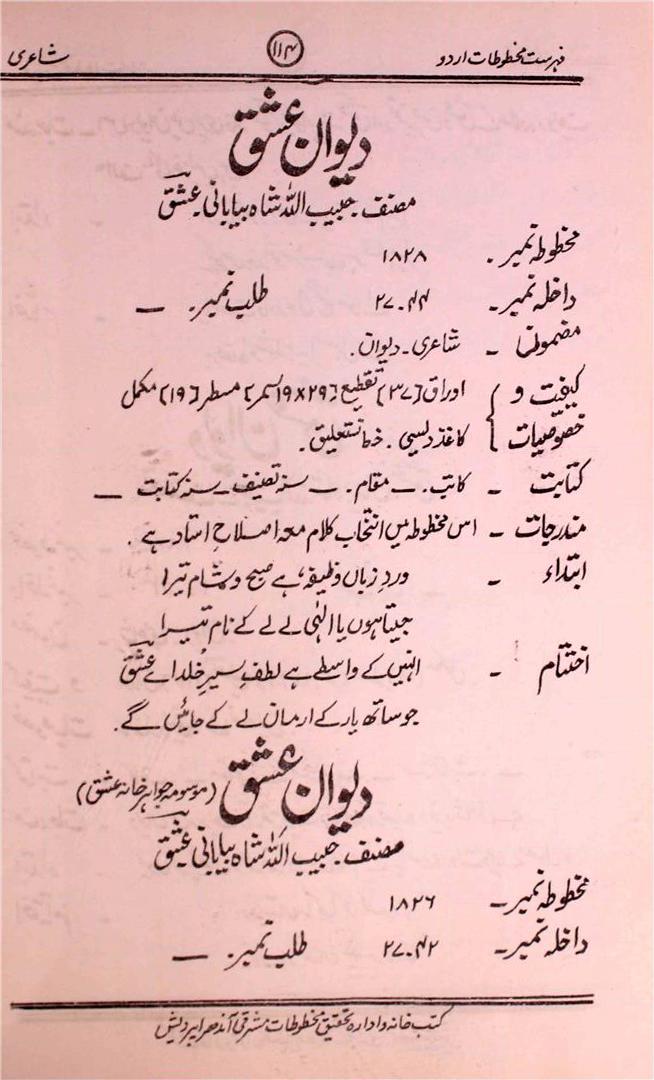 فہرست مخطوطات اردو ۱۱۴ شاعری
دیوان عشق
مصنف۔ حبیب اللہ شاہ بیابانی۔ عشق
مخطوطہ نمبر۔ ۱۸۲۸
داخلہ نمبر۔ ۲۷۰۴۴ طلب نمبر۔ —
مضمون ۔ شاعری۔ دیوان۔
کیفیت و } اوراق [۳۷] تقطیع [۲۹×۱۹ سمر] مسطر [۱۹] مکمل
خصوصیات } کاغذ دیسی۔ خط نستعلیق۔
کتابت ۔ کاتب۔ — مقام۔ — سنہ تصنیف — سنہ کتابت —
مندرجات ۔ اس مخطوطہ میں انتخاب کلام معہ اصلاحِ استاد ہے۔
ابتداء ۔ وردِ زباں وظیفہ ہے صبح و شام تیرا
جیتا ہوں یا الٰہی لے لے کے نام تیرا
اختتام ۔ انہیں کے واسطے ہے لطفِ سیرِ خُلد اے عشق
جو ساتھ یار کے ارمان لے کے جائیں گے۔
دیوان عشق (موسومہ جواہر خانہ عشق)
مصنف۔ حبیب اللہ شاہ بیابانی عشق
مخطوطہ نمبر۔ ۱۸۲۶
داخلہ نمبر۔ ۲۷۰۴۲ طلب نمبر۔ —
کتب خانہ و ادارہ تحقیق مخطوطات مشرقی آندھرا پردیش